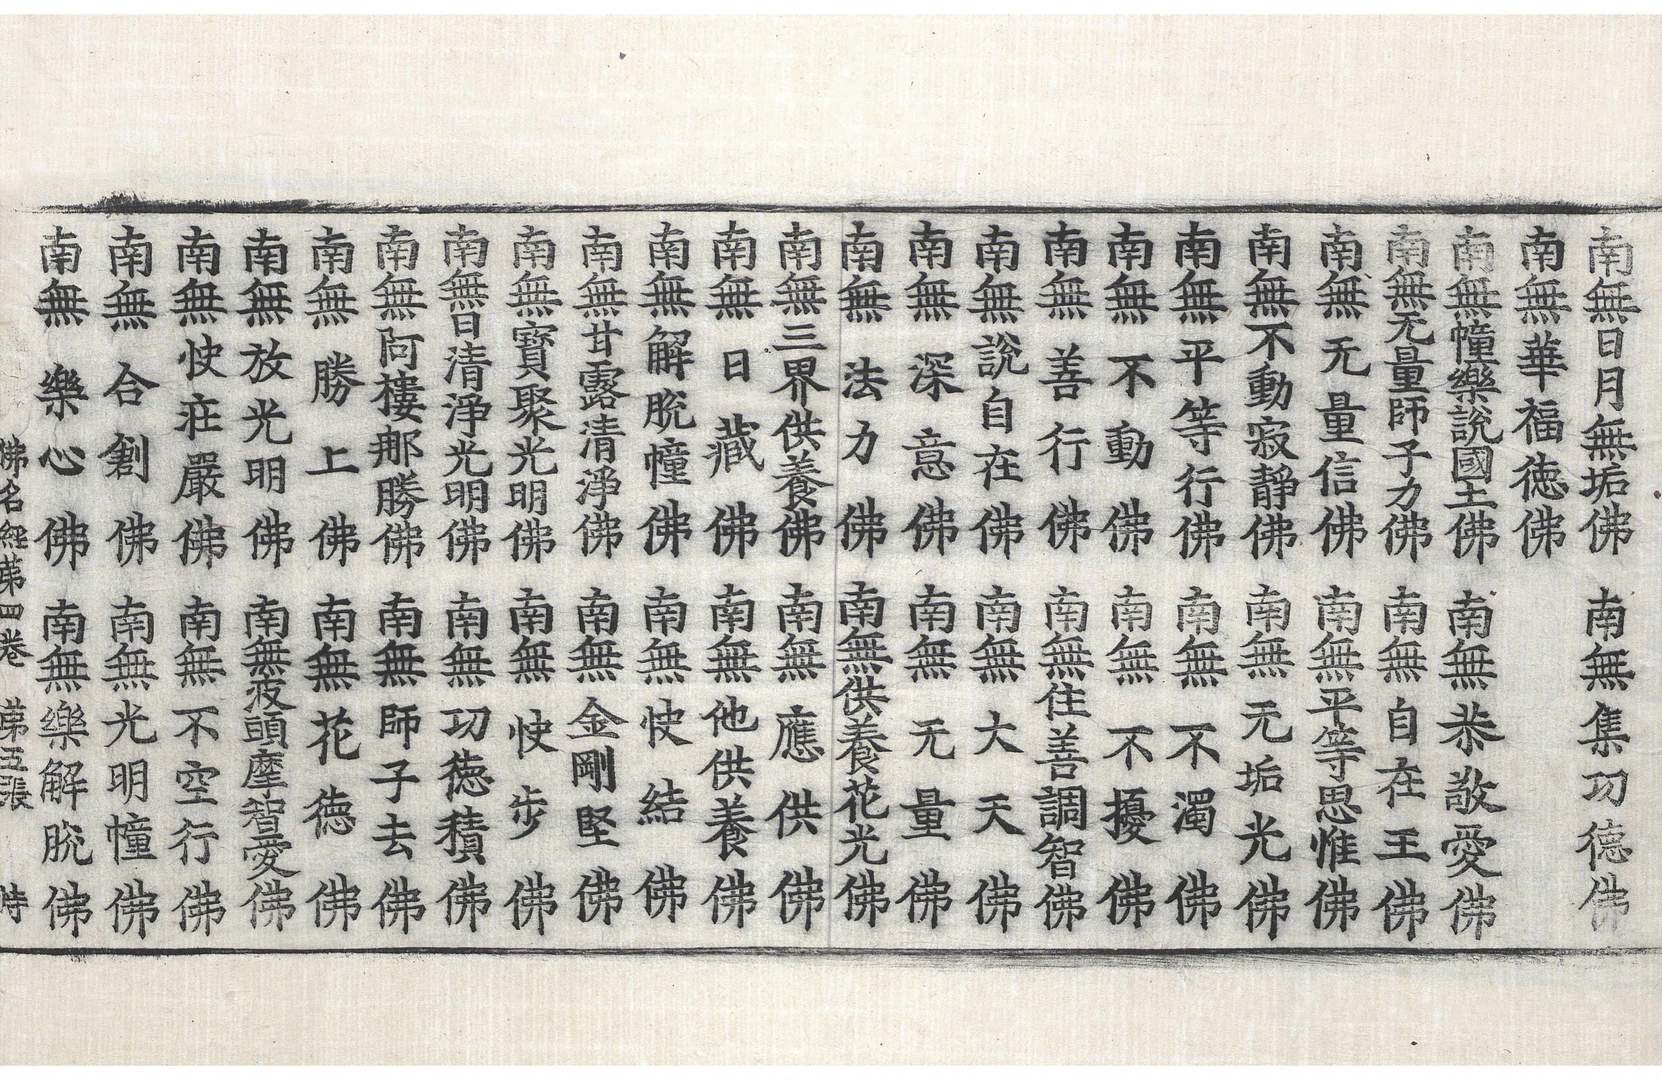 南無日月無垢佛　南無集功德佛
南無華福德佛
南無幢樂說國土佛　南無恭敬愛佛
南無无量師子力佛　南無自在王佛
南無无量信佛　南無平等思惟佛
南無不動寂靜佛　南無无垢光佛
南無平等行佛　南無不濁佛
南無不動佛　南無不擾佛
南無善行佛　南無住善調智佛
南無說自在佛　南無大天佛
南無深意佛　南無无量佛
南無法力佛　南無供養花光佛
南無三界供養佛　南無應供佛
南無日藏佛　南無他供養佛
南無解脫幢佛　南無快結佛
南無甘露清淨佛　南無金剛堅佛
南無寶聚光明佛　南無快步佛
南無日清淨光明佛　南無功德積佛
南無阿樓那勝佛　南無師子去佛
南無勝上佛　南無花德佛
南無放光明佛　南無波頭摩智愛佛
南無快莊嚴佛　南無不空行佛
南無合創佛　南無光明幢佛
南無樂心佛　南無樂解脫佛
佛名經第四卷　第五張